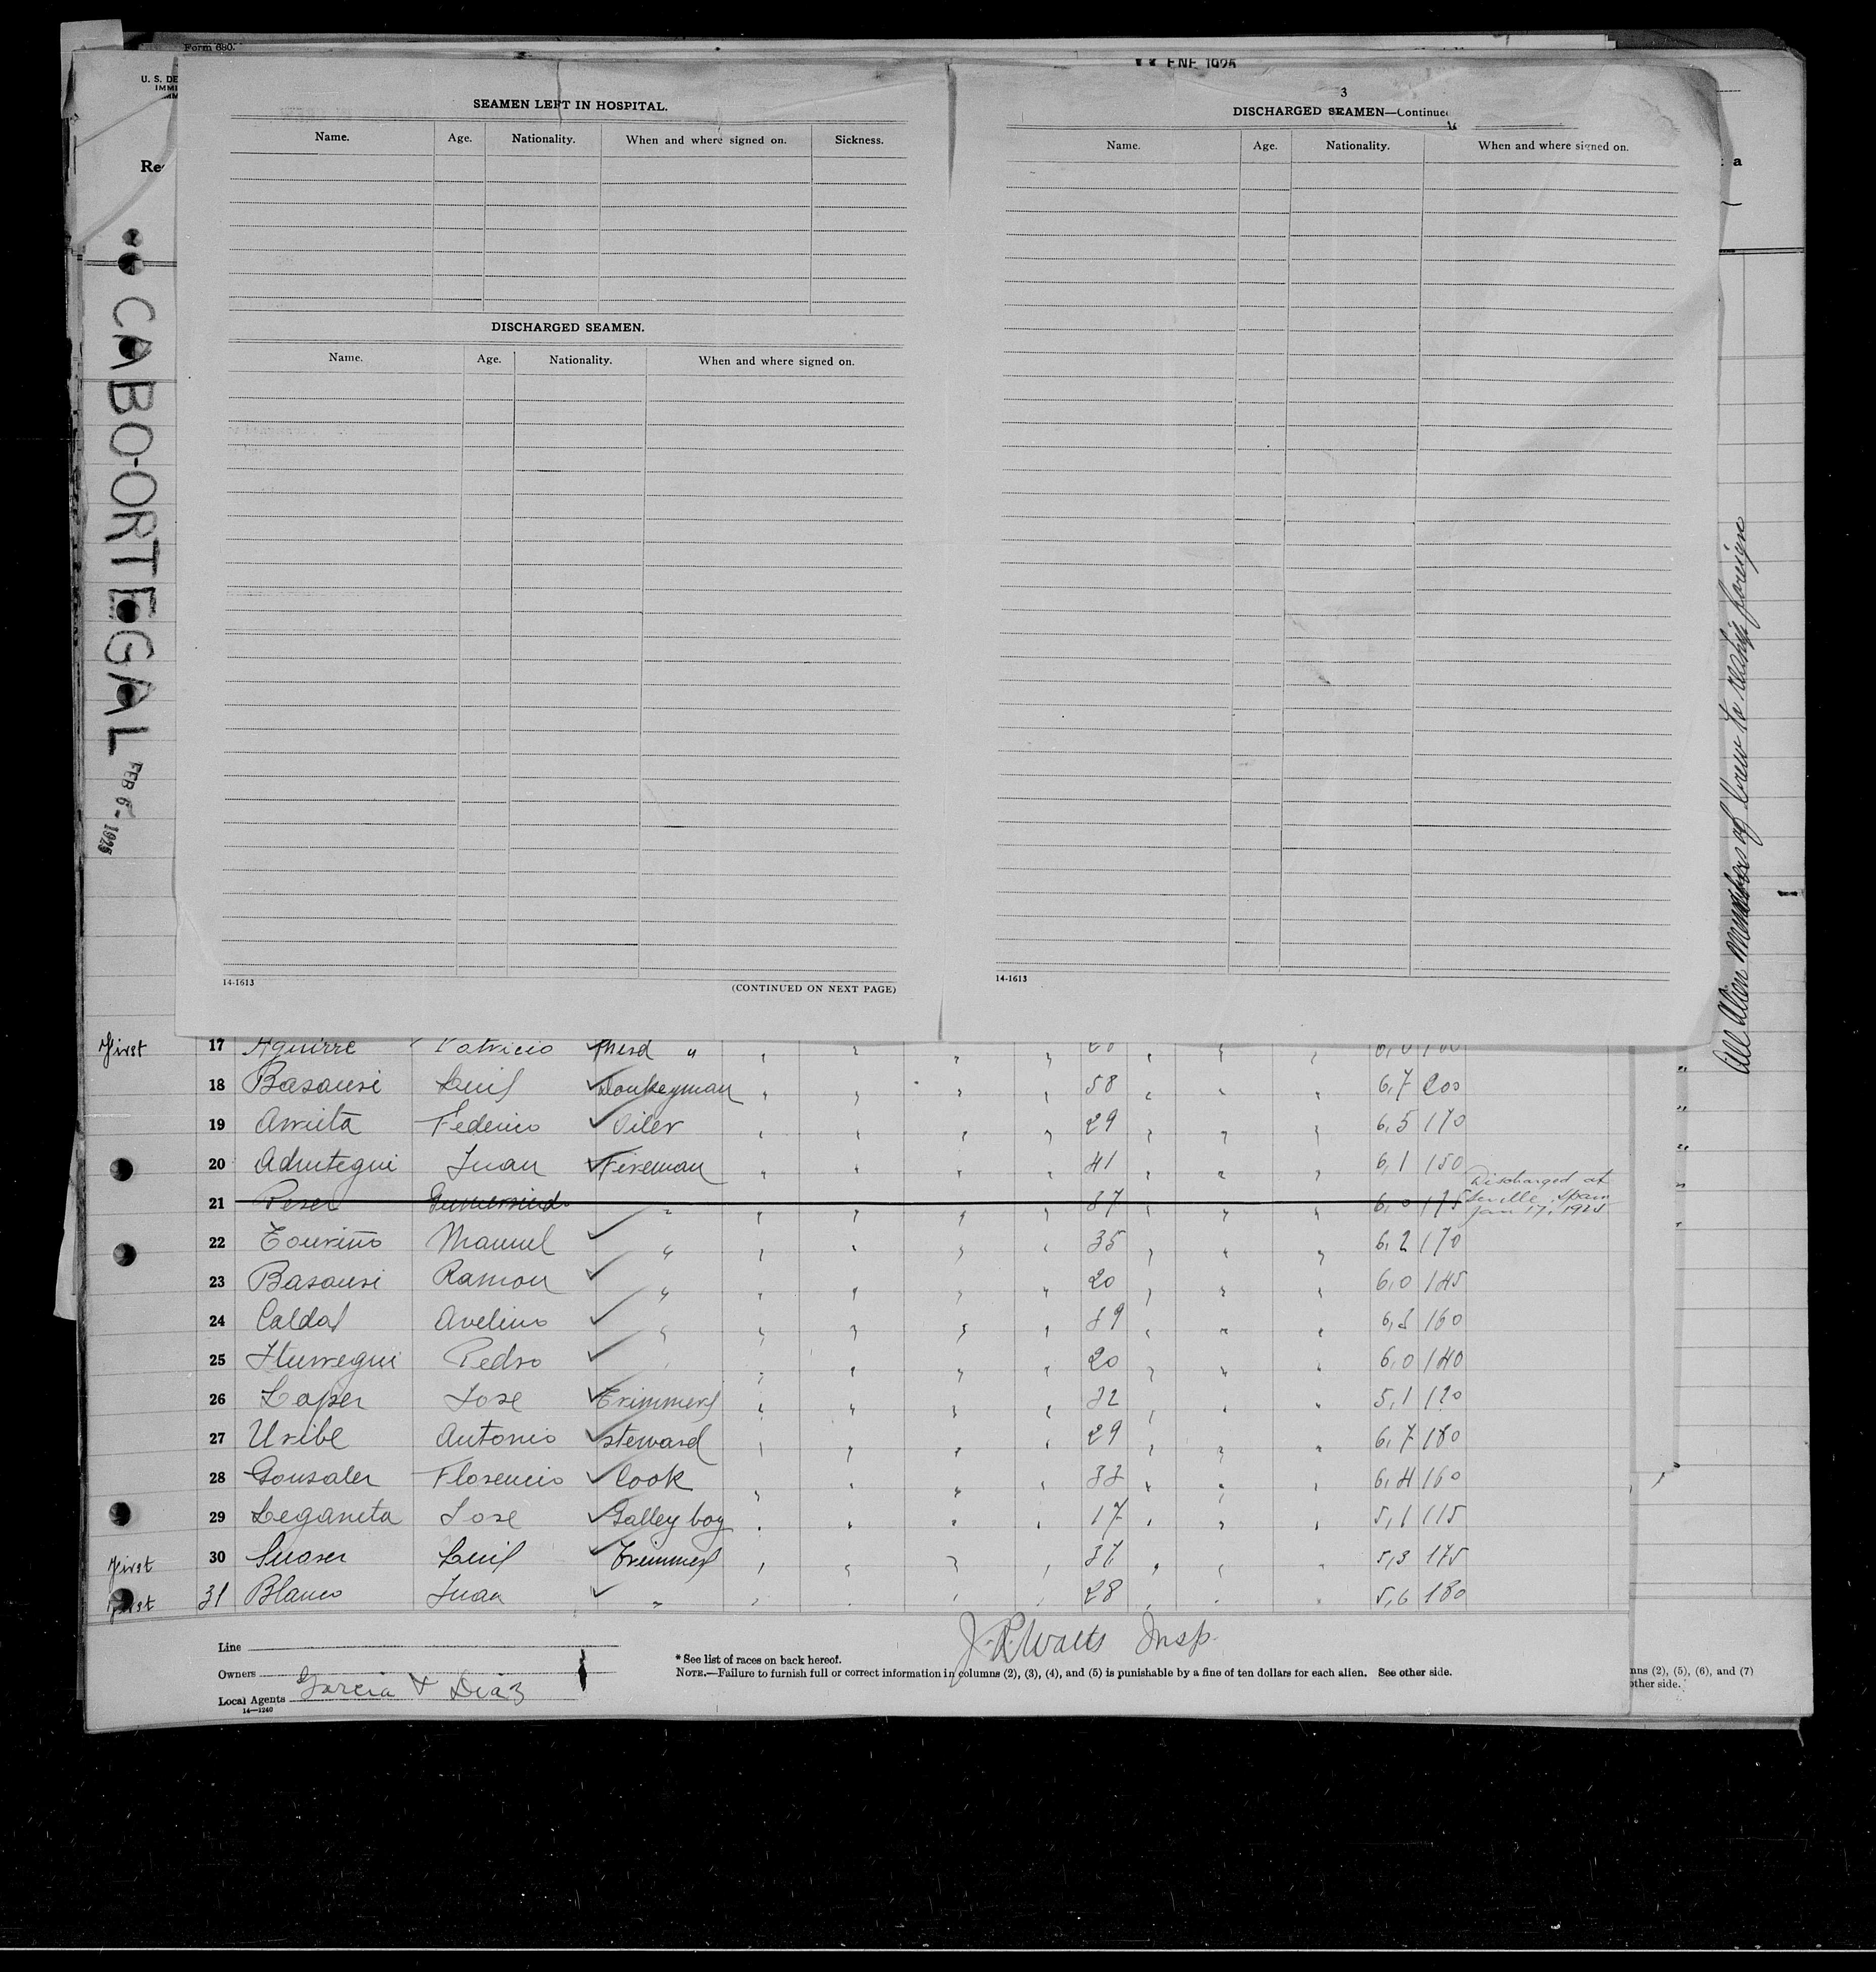 Form 680.
U. S. DE
IMMI
Re
ENE 1925
SEAMEN LEFT IN HOSPITAL.
Name. Age. Nationality. When and where signed on. Sickness.
DISCHARGED SEAMEN.
Name. Age. Nationality. When and where signed on.
14-1613 (CONTINUED ON NEXT PAGE)
3
DISCHARGED SEAMEN—Continued
Name. Age. Nationality. When and where signed on.
14-1613
a
CABO-ORTEGAL FEB 6- 1925
All Alien Members of Crew to reship foreign
First 17 Aguirre Patricio Third "
18 Basausi Luis Donkeyman 58 6,7 200
19 Arrieta Federico Oiler 29 6,5 170
20 Adutegui Juan Fireman 41 6,1 150
21 Peser 37 6,0 175 Discharged at Seville, Spain Jan 17, 1925
22 Touriño Manuel " 35 6,2 170
23 Basausi Ramon " 20 6,0 145
24 Caldas Avelino " 39 160
25 Iturregui Pedro 20 6,0 140
26 Lopez Jose Trimmers 32 5,1 120
27 Uribe Antonio steward 29 6,7 180
28 Gonsales Florencio Cook 33 6,4 160
29 Leganeta Jose Galley boy 17 5,1 115
First 30 Suarez Luis Trimmers 37 5,3 175
First 31 Blanco Juan " 28 5,6 180
J. R. Watts Insp.
Line
Owners
Local Agents Garcia & Diaz
14—1240
* See list of races on back hereof.
NOTE.—Failure to furnish full or correct information in columns (2), (3), (4), and (5) is punishable by a fine of ten dollars for each alien. See other side.
mns (2), (5), (6), and (7)
other side.